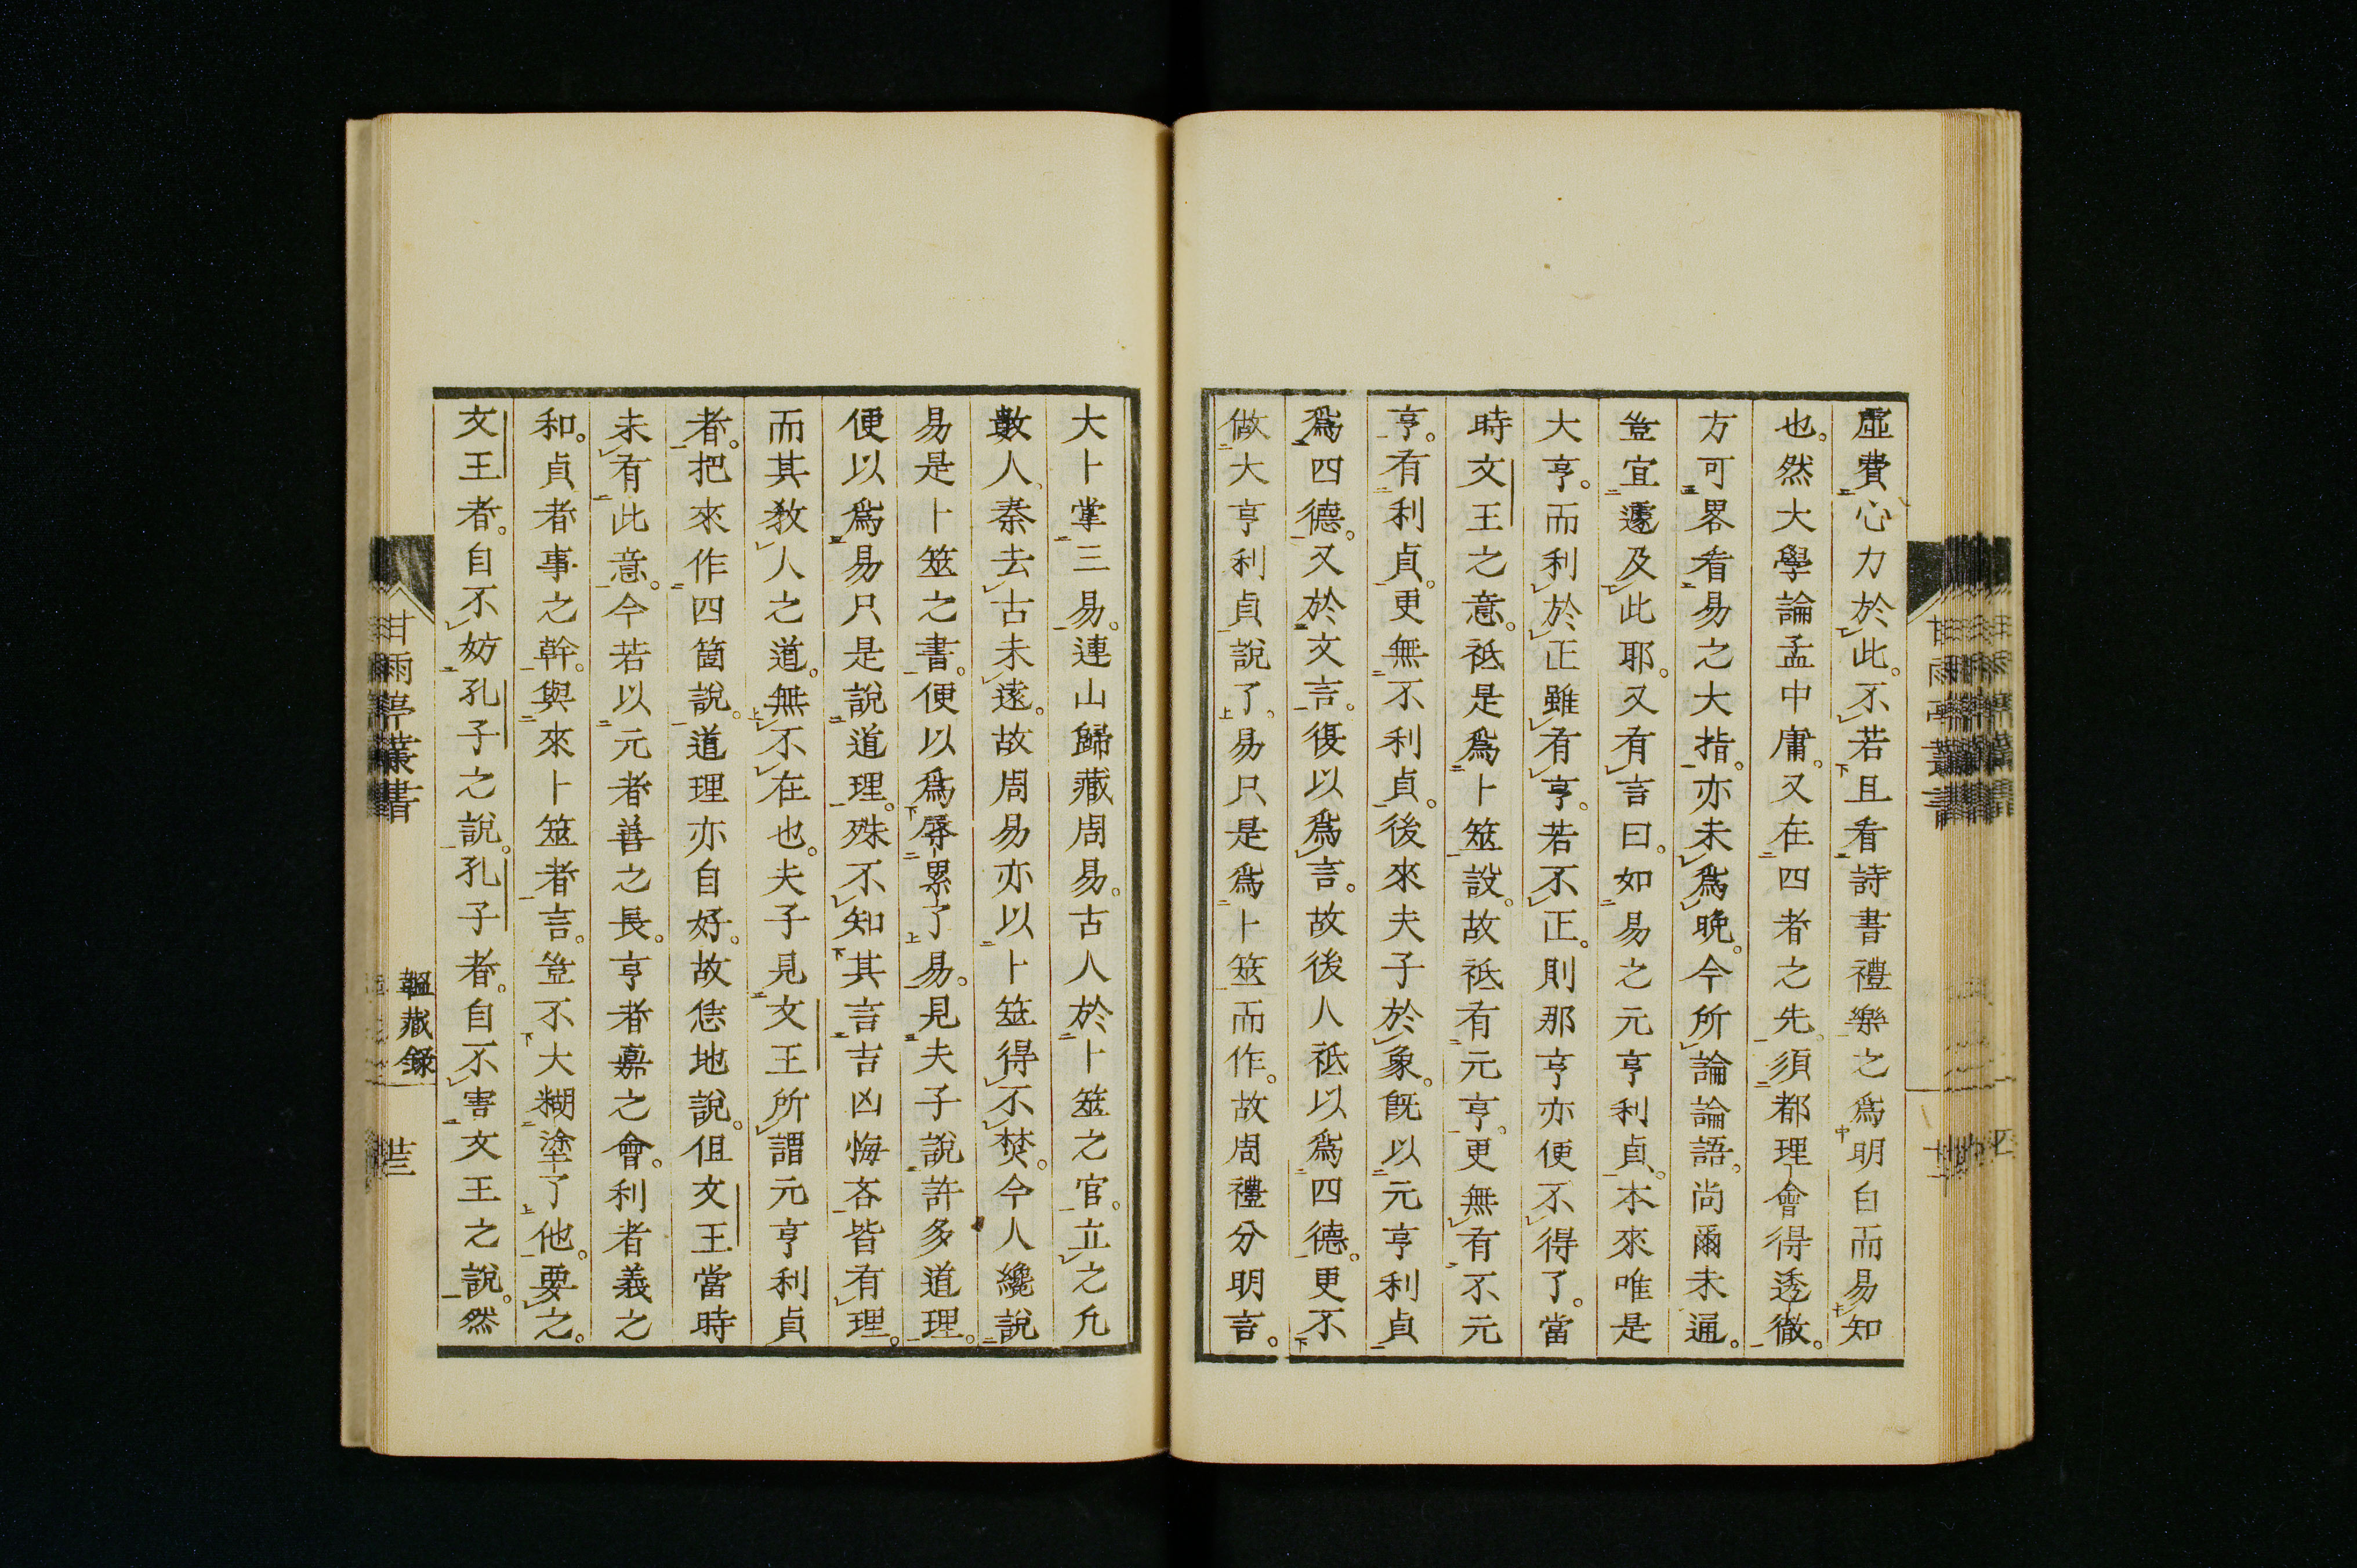 虛費心力於此。不若且看詩書禮樂之爲明白而易知
也。然大學論孟中庸。又在四者之先。須都理會得透徹。
方可畧看易之大指。亦未爲晩。今所論論語。尚爾未通。
豈宜遽及此耶。又有言曰。如易之元亨利貞。本來唯是
大亨。而利於正雖有亨。若不正。則那亨亦便不得了。當
時文王之意。祗是爲卜筮設。故祗有元亨。更無有不元
亨。有利貞。更無不利貞。後來夫子於彖。既以元亨利貞
爲四德。又於文言。復以爲言。故後人祗以爲四德。更不
做大亨利貞說了。易只是爲卜筮而作。故周禮分明言。
大卜掌三易。連山歸藏周易。古人於卜筮之官。立之凡
數人、秦去古未遠。故周易亦以卜筮得不焚。今人纔說
易是卜筮之書。便以爲辱累了易。見夫子說許多道理。
便以爲易只是說道理。殊不知其言吉凶悔吝皆有理。
而其敎人之道。無不在也。夫子見文王所謂元亨利貞
者。把來作四箇說。道理亦自好。故恁地說。但文王當時
未有此意。今若以元者善之長。亨者嘉之會。利者義之
和。貞者事之幹。與來卜筮者言。豈不大糊塗了他。要之。
文王者。自不妨孔子之說。孔子者。自不害文王之說。然
甘雨亭叢書
韞藏錄